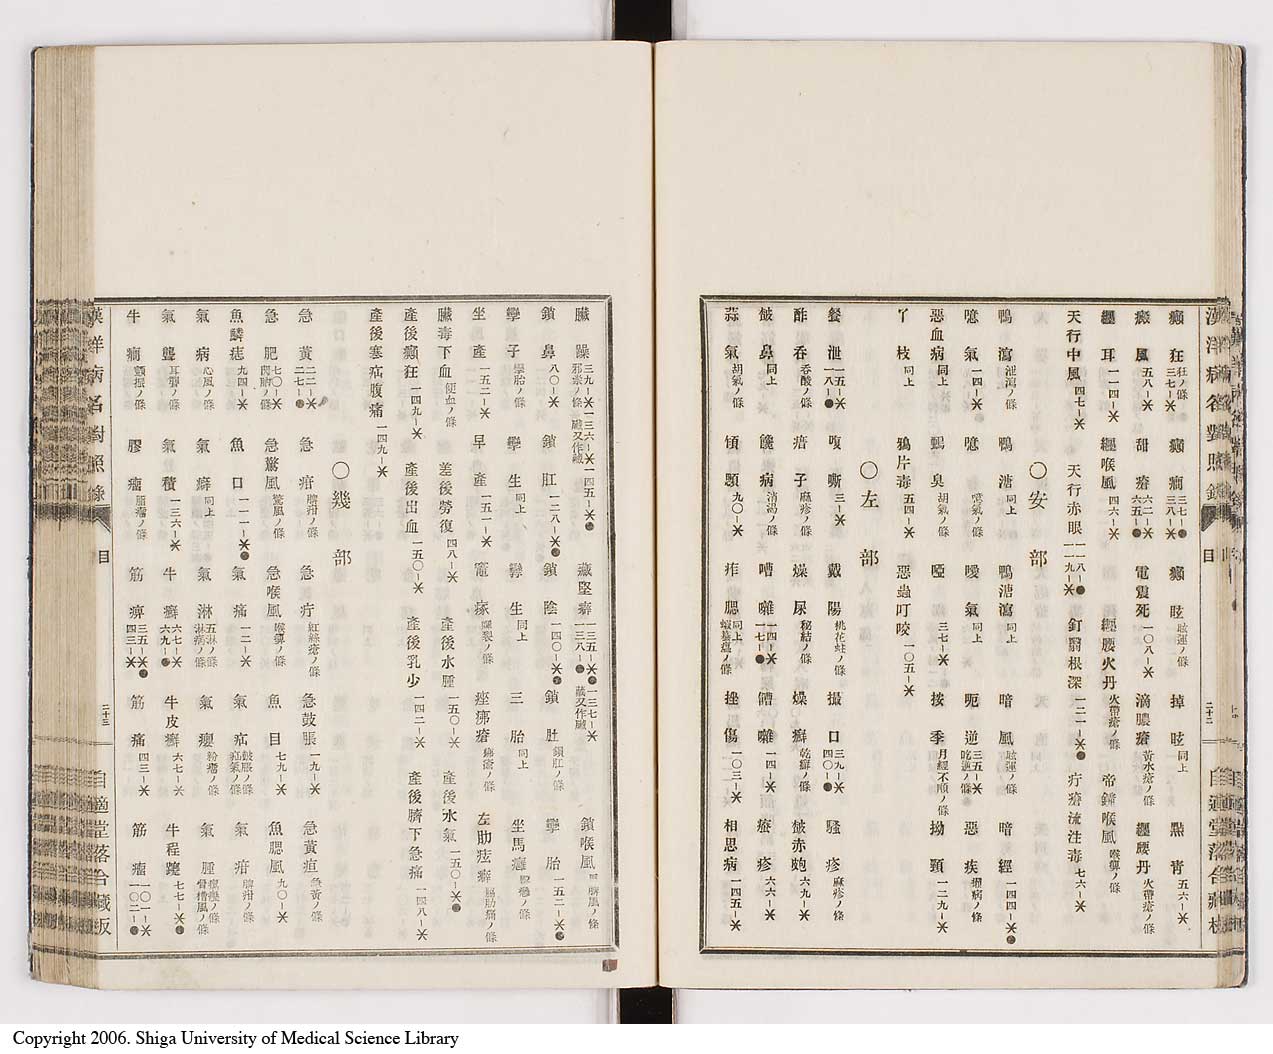 漢洋病名對照錄 目 二十二 自適堂落合藏板
癲狂 狂ノ條 三七-✕ 癲癇 三七-● 三八-✕ 癲眩 眩運ノ條 掉眩 同上 㸃青 五六-✕
癜風 五八-✕ 甜瘡 六二-✕ 六五-● 電震死 一〇八-✕ 滴膿瘡 黃水瘡ノ條 纒腰丹 火帶瘡ノ條
纒耳 一一四-✕ 纒喉風 四六-✕ 纒腰火丹 火帶瘡ノ條 帝鐘喉風 喉痺ノ條
天行中風 四七-✕ 天行赤眼 一一八-● 一一九-✕ 釘翳根深 一二一-✕● 疔瘡流注毒 七六-✕
〇安部
鴨瀉 泄瀉ノ條 鴨溏 同上 鴨溏瀉 同上 暗風 眩運ノ條 暗經 一四四-✕●
噫氣 一四-✕ 噫 噫氣ノ條 噯氣 同上 呃逆 三五-✕ 吃逆ノ條 惡疾 癩病ノ條
惡血病 同上 鴨臭 胡氣ノ條 啞 三七-✕ 按季 月經不順ノ條 拗頸 一二九-✕
丫枝 同上 鴉片毒 五四-✕ 惡蟲叮咬 一〇五-✕
〇左部
餐泄 一五-✕ 一八-● 嗄嘶 三-✕ 戴陽 桃花疰ノ條 撮口 三九-✕ 四〇-● 騷疹 麻疹ノ條
酢吞 吞酸ノ條 瘄子 麻疹ノ條 燥尿 秘結ノ條 燥癬 乾癬ノ條 皶赤皰 六九-✕
皶鼻 同上 饞病 消渴ノ條 嘈囃 一四-✕ 一七-● 䐬囃 一四-✕ 痧疹 六六-✕
蒜氣 胡氣ノ條 䪼顋 九〇-✕ 痄腮 同上 蝦蟇瘟ノ條 挫傷 一〇三-✕ 相思病 一四五-✕
臟躁 三九-✕ 一三六-✕ 一四五-✕● 邪祟ノ條 臟又作藏 藏堅癖 一三五-✕● 一三七-✕ 一三八-● 藏又作臟 鎖喉風 脾風ノ條
鎖鼻 八〇-✕ 鎖肛 一二八-✕● 鎖陰 一四〇-✕● 鎖肚 鎖肛ノ條 孿胎 一五二-✕●
孿子 孿胎ノ條 孿生 同上 孿生 同上 三胎 同上 坐馬癰 懸癰ノ條
坐產 一五二-✕ 早產 一五一-✕ 竈瘃 皸裂ノ條 痤疿瘡 疿瘡ノ條 左肋痃癖 脇肋痛ノ條
臟毒下血 便血ノ條 差後勞復 四八-✕ 產後水腫 一五〇-✕ 產後水氣 一五〇-✕●
產後癲狂 一四九-✕ 產後出血 一五〇-✕ 產後乳少 一四二-✕ 產後臍下急痛 一四八-✕
產後塞疝腹痛 一四九-✕
〇幾部
急黃 二二-✕ 二七-● 急疳 脾疳ノ條 急疔 紅絲瘡ノ條 急鼓脹 一九-✕ 急黃疸 急黃ノ條
急肥 七〇-✕ 急驚風 驚風ノ條 急喉風 喉痺ノ條 魚目 七九-✕ 魚腮風 九〇-✕
魚鱗痣 九四-✕ 魚口 一一一-✕● 氣痛 一二-✕ 氣疝 疝氣ノ條 氣疳 脾疳ノ條
氣病 心風ノ條 氣癖 同上 氣淋 五淋ノ條 淋病ノ條 氣癭 粉瘤ノ條 氣腫 骨槽風ノ條
氣聾 耳聾ノ條 氣積 一三六-✕ 牛癬 六七-✕ 六九-● 牛皮癬 六七-✕ 牛程蹇 七七-✕●
牛癇 顫振ノ條 膠瘤 脂瘤ノ條 筋痹 三五-✕● 四三-✕ 筋痛 四三-✕ 筋瘤 一〇一-✕ 一〇二-●
漢洋病名對照錄 目 二十三 自適堂落合藏板
Copyright 2006. Shiga University of Medical Science Library